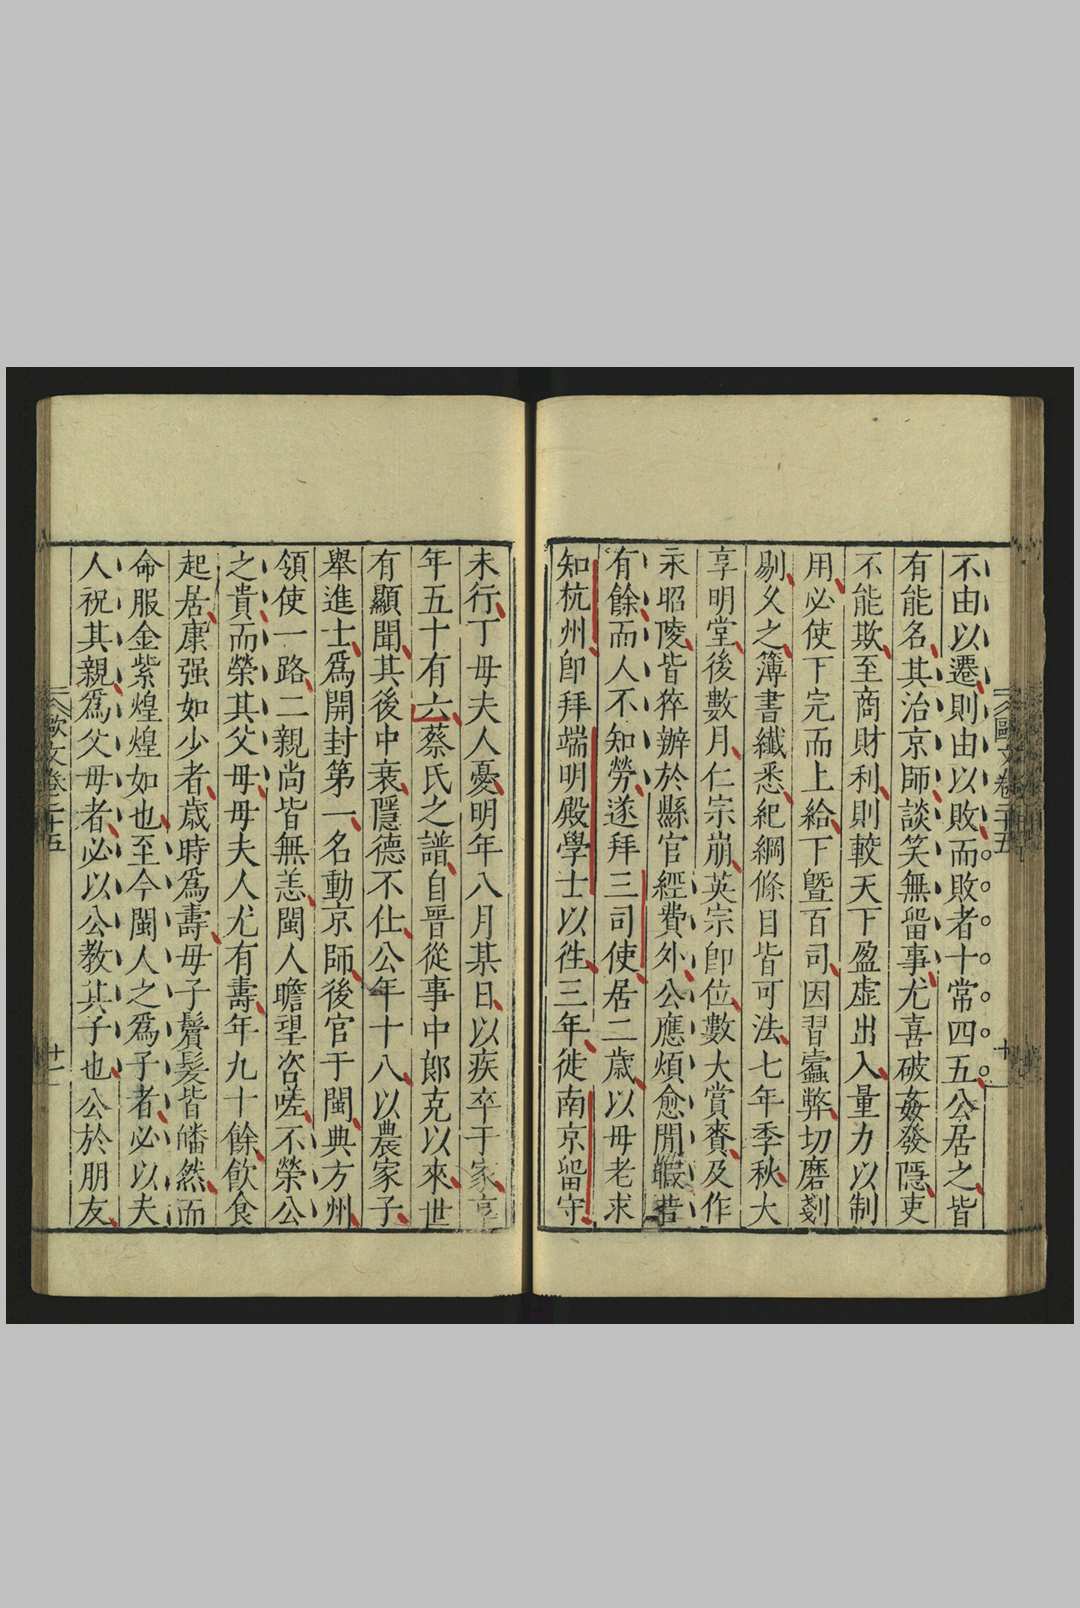 歐文卷二十五
十
不由以遷則由以敗而敗者十常四五公居之皆
有能名其治京師談笑無留事尤喜破姦發隱吏
不能欺至商財利則較天下盈虛出入量力以制
用必使下完而上給下曁百司因習蠹弊切磨剗
剔久之簿書纖悉紀綱條目皆可法七年季秋大
享明堂後數月仁宗崩英宗卽位數大賞賚及作
永昭陵皆猝辦於縣官經費外公應煩愈閒暇若
有餘而人不知勞遂拜三司使居二歲以母老求
知杭州卽拜端明殿學士以徃三年徙南京留守
未行丁母夫人憂明年八月某日以疾卒于家享
年五十有六蔡氏之譜自晉從事中郎克以來世
有顯聞其後中衰隱德不仕公年十八以農家子
舉進士爲開封第一名動京師後官于閩典方州
領使一路二親尚皆無恙閩人瞻望咨嗟不榮公
之貴而榮其父母母夫人尤有壽年九十餘飲食
起居康强如少者歲時爲壽母子鬢髮皆皤然而
命服金紫煌煌如也至今閩人之爲子者必以夫
人祝其親爲父母者必以公教其子也公於朋友
歐文卷二十五
十一